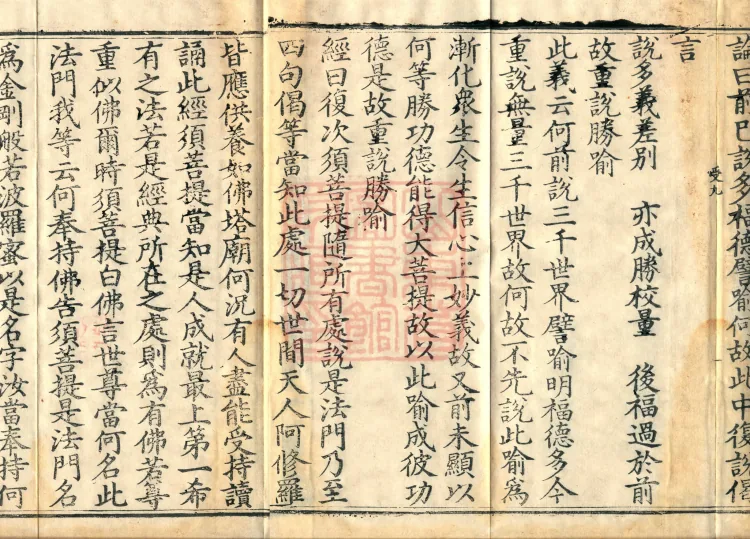 論曰前已說多福德譬喻何故此中復說偈
言
說多義差別　亦成勝校量　後福過於前
故重說勝喻
此義云何前說三千世界譬喻明福德多今
重說無量三千世界故何故不先說此喻為
漸化衆生令生信心上妙義故又前未顯以
何等勝功德能得大菩提故以此喻成彼功
德是故重說勝喻
經曰復次須菩提隨所有處說是法門乃至
四句偈等當知此處一切世間天人阿修羅
皆應供養如佛塔廟何況有人盡能受持讀
誦此經須菩提當知是人成就最上第一希
有之法若是經典所在之處則為有佛若尊
重似佛爾時須菩提白佛言世尊當何名此
法門我等云何奉持佛告須菩提是法門名
為金剛般若波羅蜜以是名字汝當奉持何